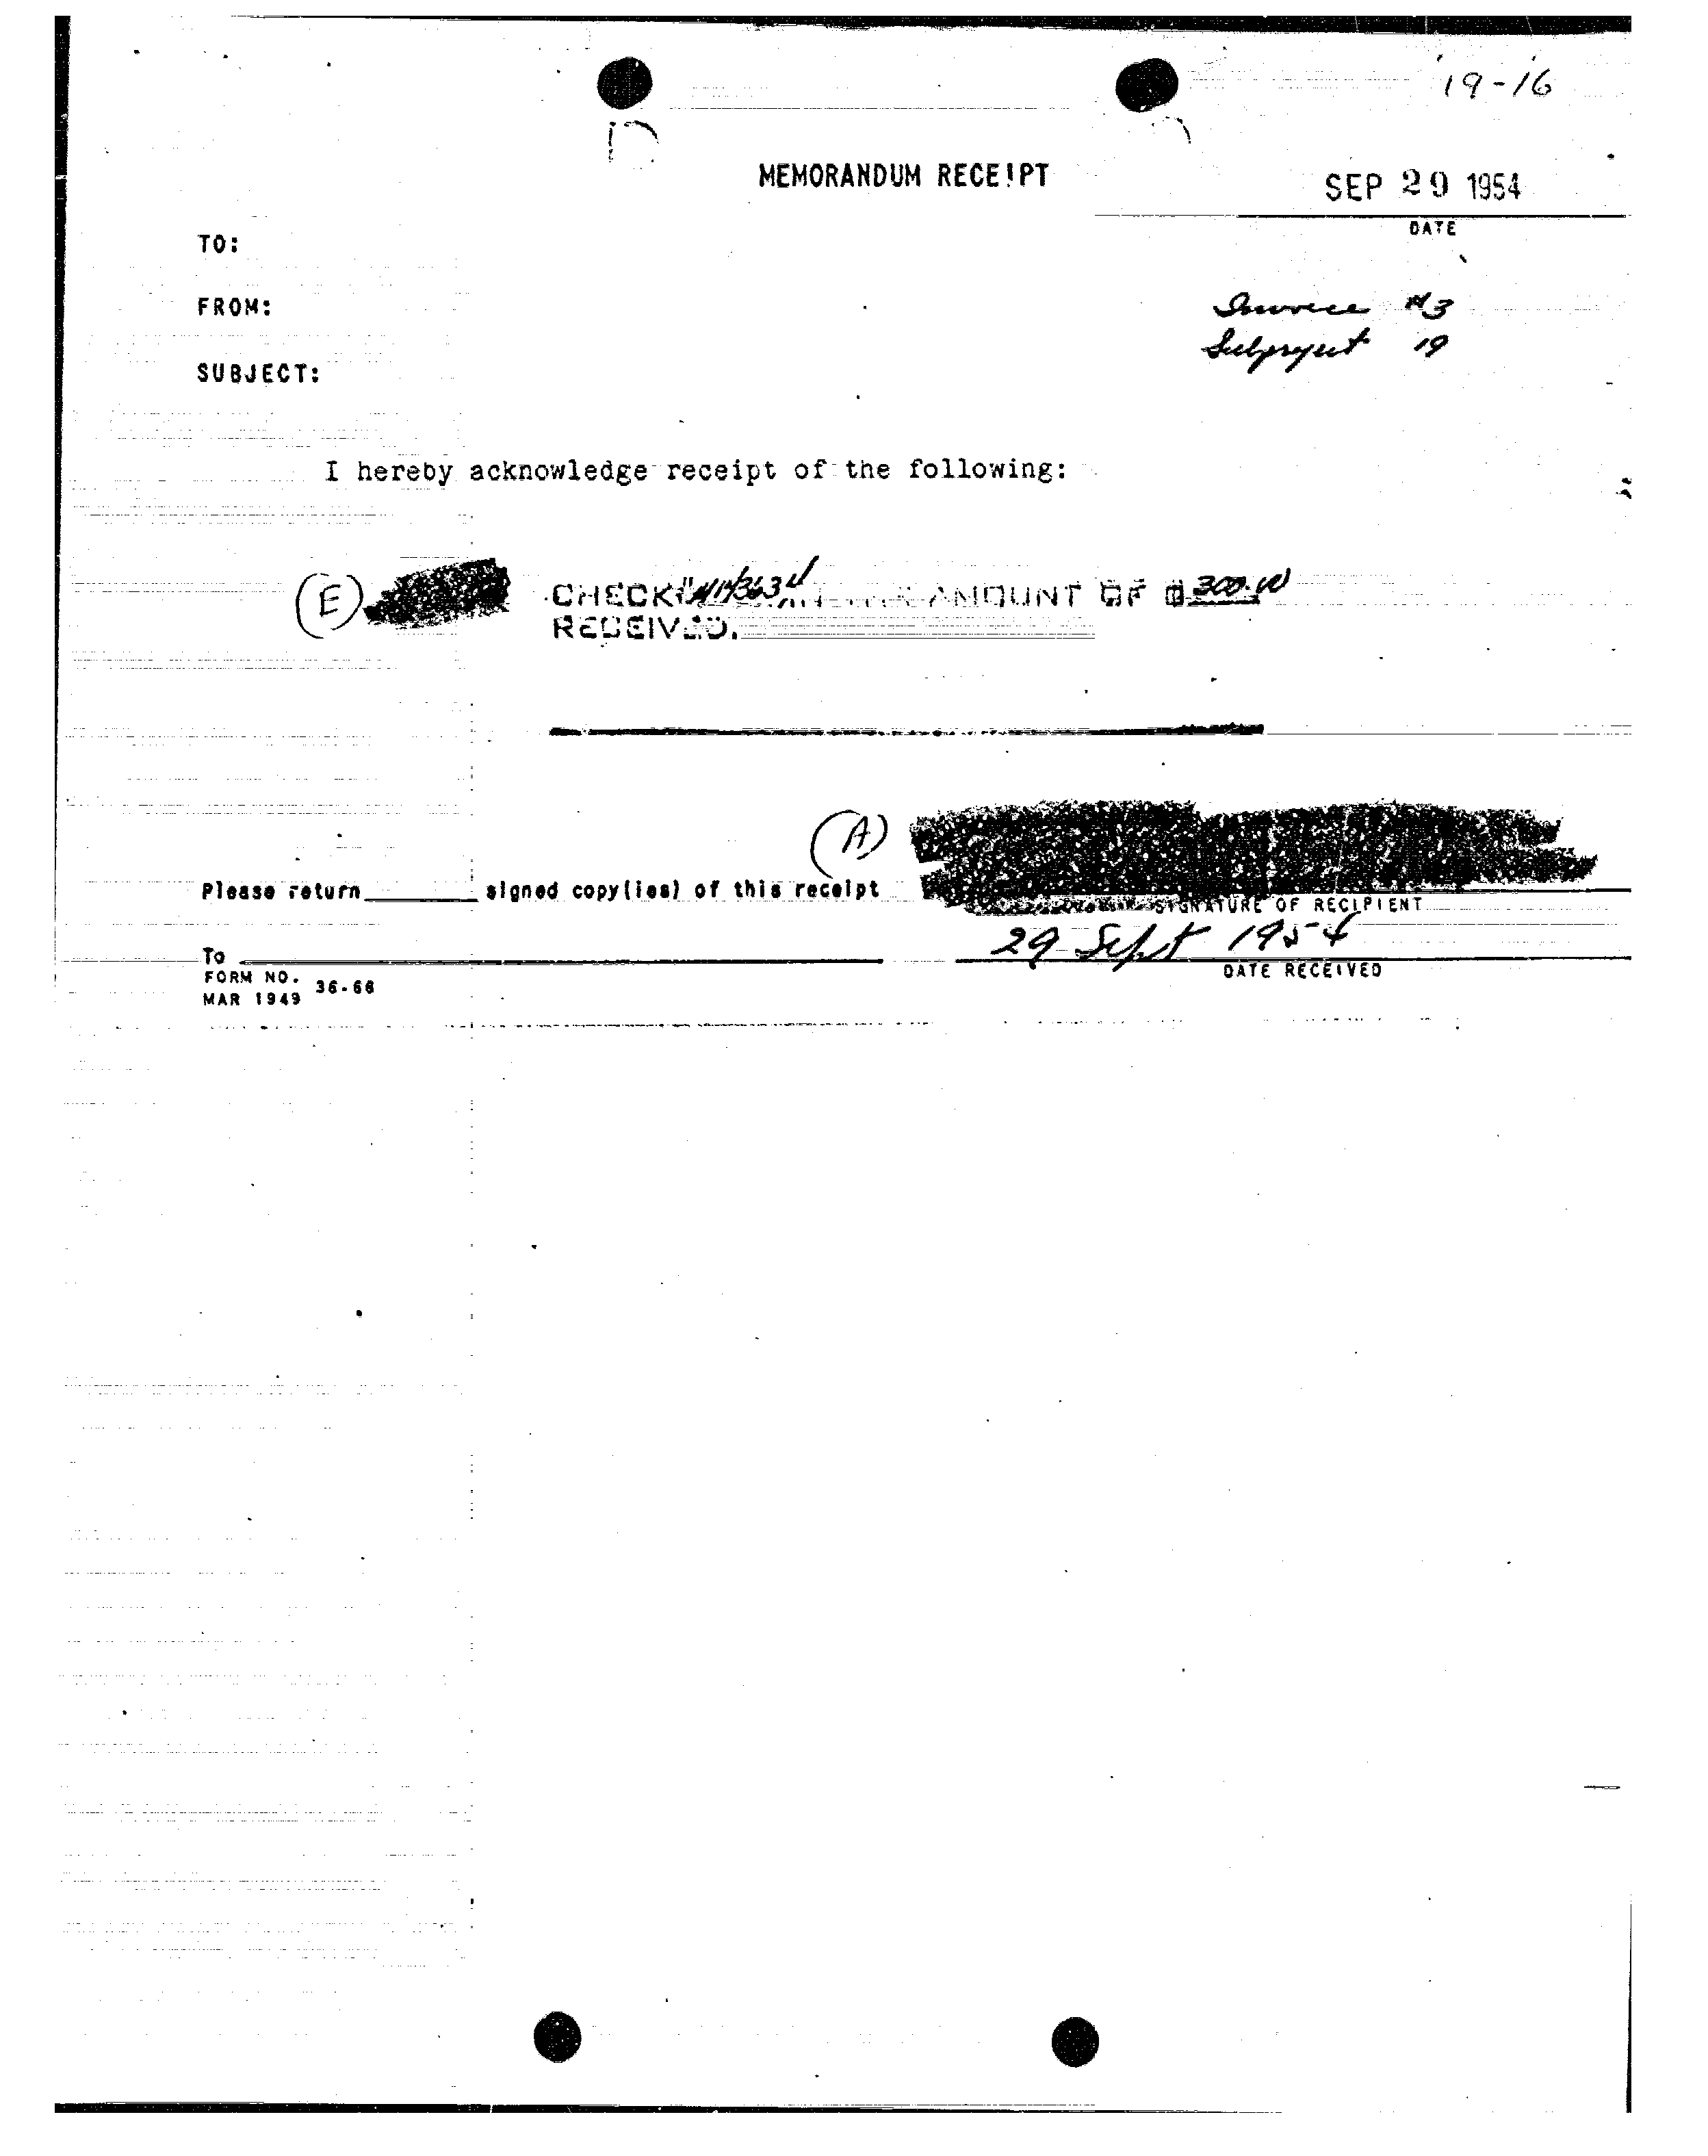 19-16
MEMORANDUM RECEIPT
SEP 29 1954
DATE
TO:
FROM:
Invoice #3
Subproject 19
SUBJECT:
I hereby acknowledge receipt of the following:
(E) CHECK # AMOUNT OF $ 300.00
RECEIVED.
(A)
Please return signed copy(ies) of this receipt
SIGNATURE OF RECIPIENT
29 Sept 1954
To
DATE RECEIVED
FORM NO. 36-66
MAR 1949